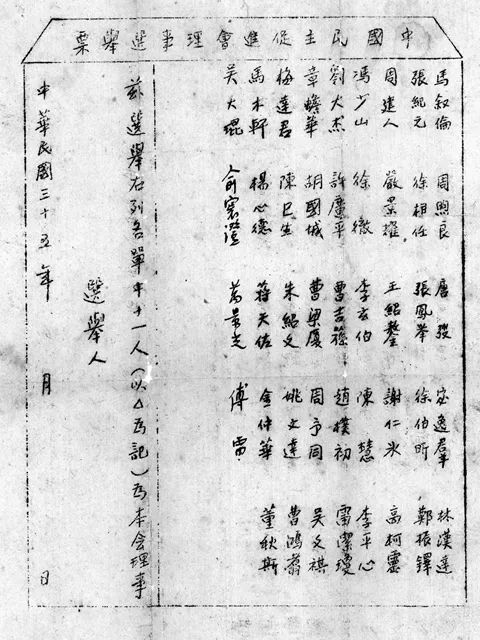 中國民主促進會理事選舉票
馬叙倫 周煦良 唐弢 宓逸羣 林漢達
張紀元 徐相任 張鳳举 徐伯昕 鄭振鐸
周建人 嚴景耀 王紹鏊 謝仁氷 高柯靈
馮少山 徐徹 李玄伯 陳慧 李平心
劉大杰 許廣平 趙樸初 雷潔瓊
章蟾華 胡國城 曹梁厦 周予同 吴文祺
梅達君 陳巳生 朱紹文 姚文達 曹鴻翥
馬木軒 楊心德 蒋天佐 金仲華 董秋斯
吴大琨 俞寰澄 萬景光 傅雷
茲選舉右列名單中十一人(以△為記)為本會理事
選舉人
中華民國三十五年 月 日